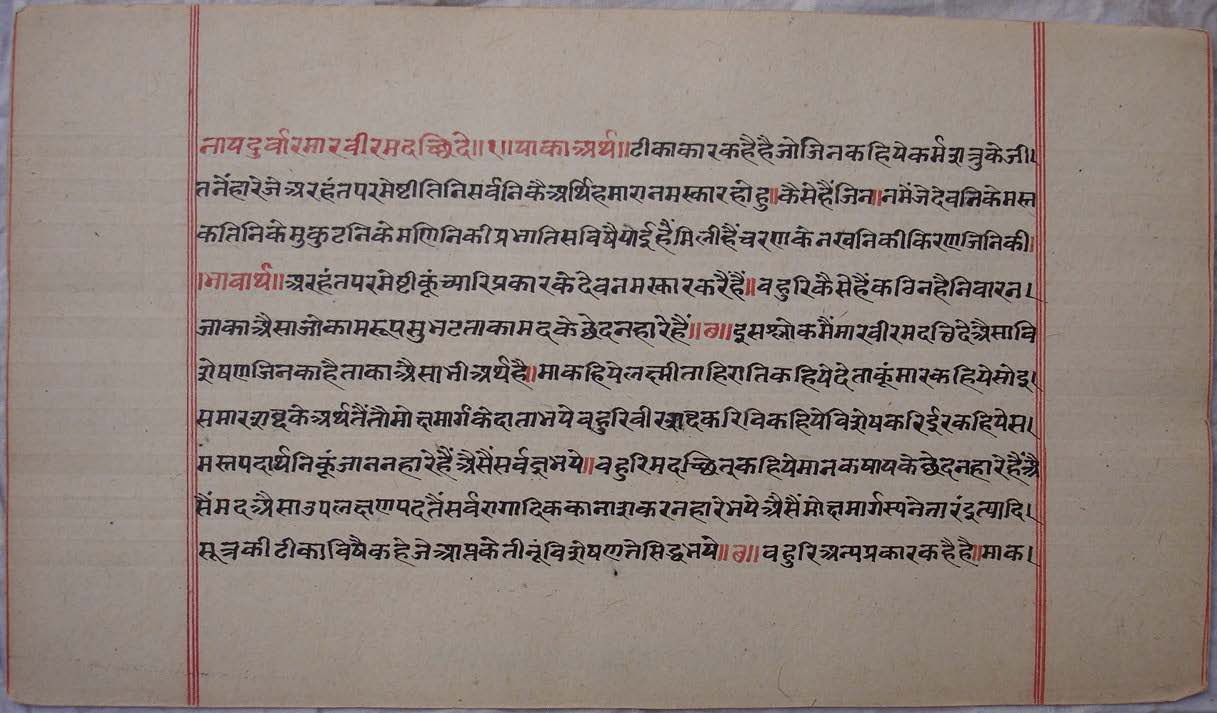 नायदुर्वारमारवीरमदच्छिदे॥१॥याकाअर्थ॥टीकाकारकहैहैजोजिनकहियेकर्मशत्रुकेजी।
तनैंहारेजेअरहंतपरमेष्टीतिनिसर्वनिकैअर्थिहमारानमस्कारहोहु॥कैसेहैंजिन॥नमैंजेदेवनिकेमस्त
कतिनिकेमुकुटनिकेमणिनिकीप्रभातिसविषैंयोईहैंमिलीहैंचरणकेनखनिकीकिरणजिनिकी।
॥भावार्थ॥अरहंतपरमेष्टीकूंच्यारिप्रकारकेदेवनमस्कारकरैहैं॥बहुरिकैसेहैंकठिनहैनिवारन।
जाकाअैसाजोकामरूपसुभटताकामदकेछेदनहारेहैं॥छ॥इसश्लोकमैंमारवीरमदछिदेअैसावि
शेषणजिनकाहैताकाअैसाभीअर्थहै॥माकहियेलक्ष्मीताहिरातिकहियेदेताकूंमारकहियेसोइ।
समारशब्दकेअर्थतैंतौमोक्षमार्गकेदाताभयेबहुरिवीरशब्दकरिविकहियेविशेषकरिईरकहियेस।
मस्तपदार्थनिकूंजाननहारेहैंअैसैंसर्वज्ञभये॥बहुरिमदच्छित्कहियेमानकषायकेछेदनहारेहैंअै
सैंमदअैसाउपलक्षणपदतैंसर्वरागादिककानाशकरनहारेभयेअैसैंमोक्षमार्गस्यनेतारंइत्यादि।
सूत्रकीटीकाविषैकहेजेआप्तकेतीनूंविशेषणतेसिद्धभये॥छ॥बहुरिअन्यप्रकारकहैहै॥माक।